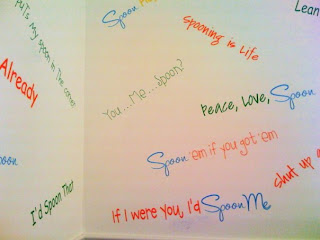 Puts my spoon in the corner
Already
Spoon
I'd Spoon That
Spoon
Spooning is Life
Lean
You...Me....Spoon?
Peace, Love, Spoon
Spoon 'em if you got 'em
shut up
If I were you, I'd Spoon Me